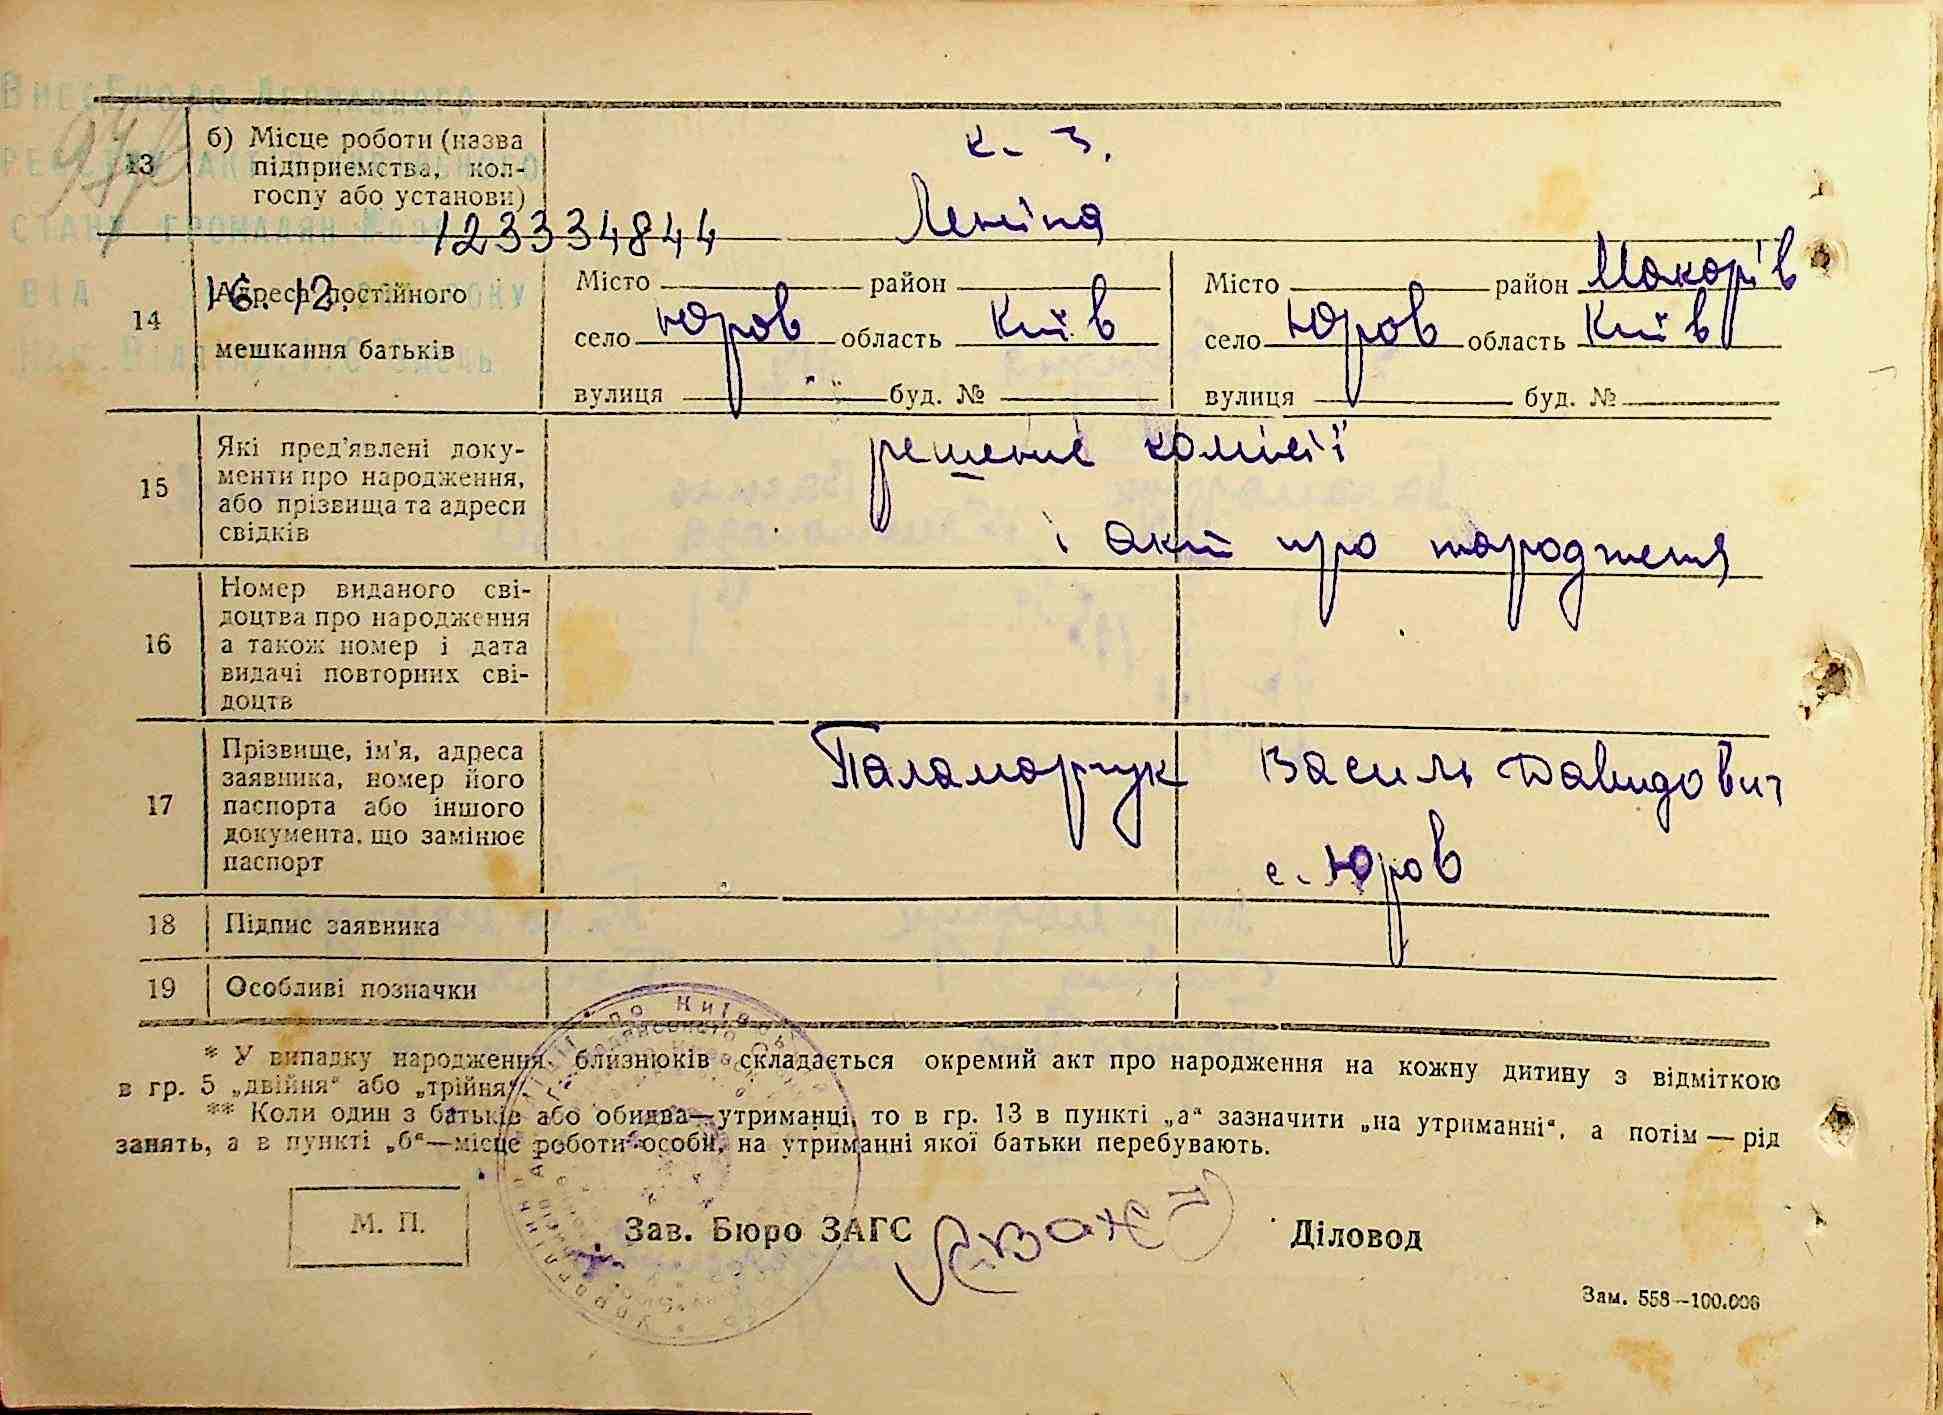 13
б) Місце роботи (назва
підприємства, кол-
госпу або установи)
к. з.
Леніна
123334844
14
16. 12.
Адреса постійного
мешкання батьків
Місто район
село Юров область Київ
вулиця буд. №
Місто район Макорів
село Юров область Київ
вулиця буд. №
15
Які пред'явлені доку-
менти про народження,
або прізвища та адреси
свідків
решение комісії
і акт про народження
16
Номер виданого сві-
доцтва про народження
а також номер і дата
видачі повторних сві-
доцтв
17
Прізвище, ім'я, адреса
заявника, номер його
паспорта або іншого
документа, що замінює
паспорт
Паламарчук Василь Давидович
с. Юров
18 Підпис заявника
19 Особливі позначки
* У випадку народження близнюків складається окремий акт про народження на кожну дитину з відміткою
в гр. 5 „двійня“ або „трійня“.
** Коли один з батьків або обидва—утриманці, то в гр. 13 в пункті „а“ зазначити „на утриманні“, а потім — рід
занять, а в пункті „б“—місце роботи особи, на утриманні якої батьки перебувають.
М. П.
Зав. Бюро ЗАГС
Діловод
Зам. 558—100.000